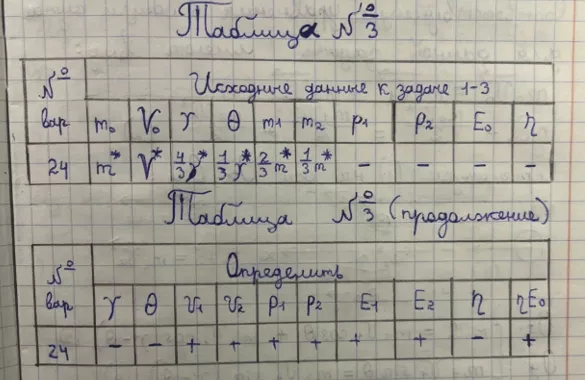 Таблица № 3
№ вар
Исходные данные к задаче 1-3
m₀ V₀ γ θ m₁ m₂ p₁ p₂ E₀ η
24 m* V* 4/3 γ* 1/3 γ* 2/3 m* 1/3 m* – – – –
Таблица № 3 (продолжение)
№ вар
Определить
γ θ v₁ v₂ p₁ p₂ E₁ E₂ η ηE₀
24 – – + + + + + + – +